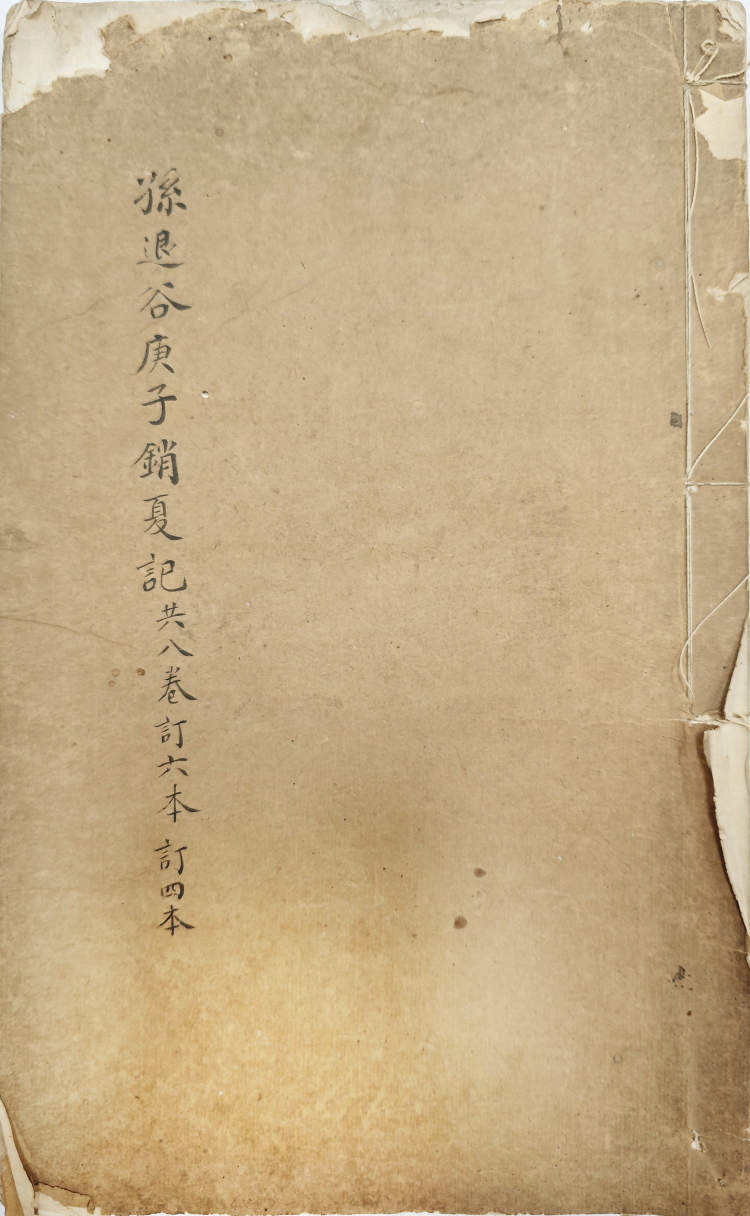 孫退谷庚子銷夏記共八卷訂六本 訂四本